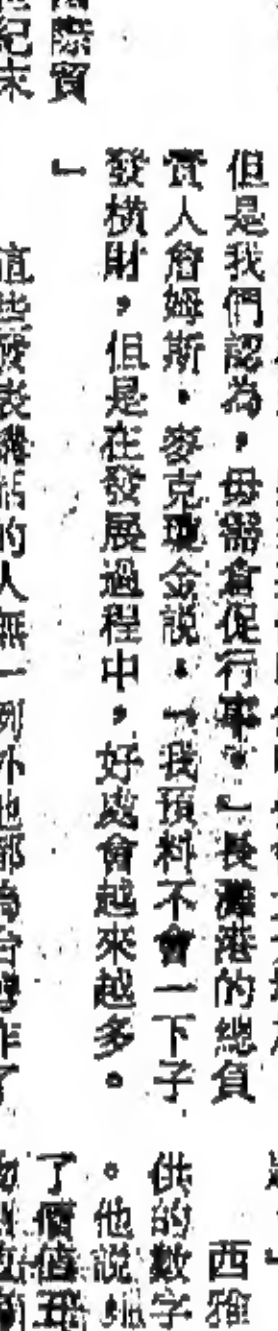 但是我們認為，毋需倉促行事。」長灘港的總負
責人詹姆斯·麥克瓊金說，「我預料不會一下子
發橫財，但是在發展過程中，好處會越來越多。
」
際貿
紀末
這些發表講話的人無一例外地都為台灣作了
西雅
供的數字
。他說
了價值五